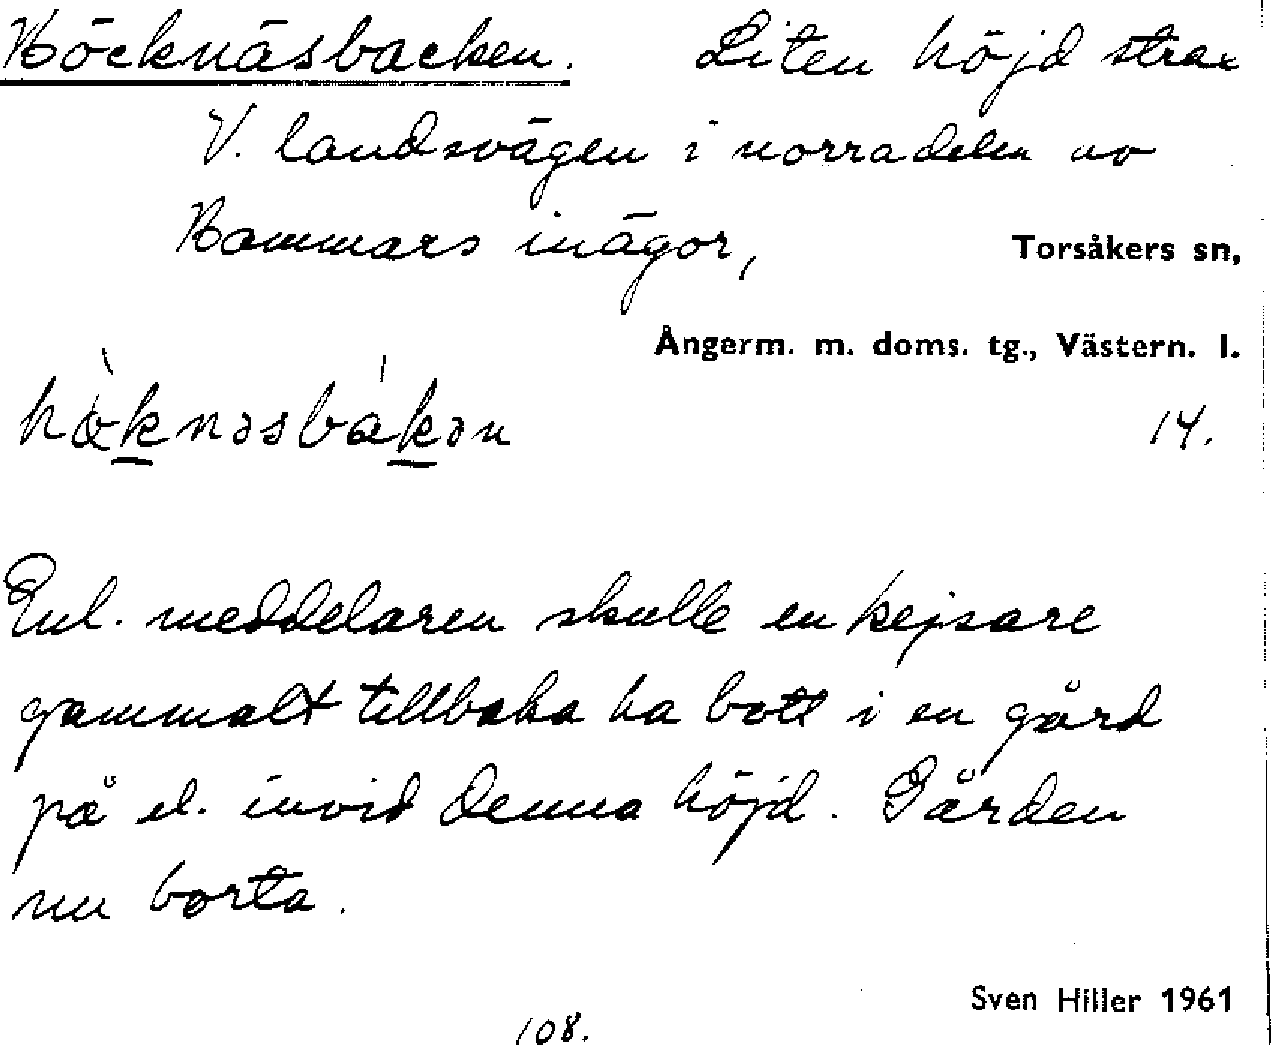 Höcknäsbacken. Liten höjd strax
V. landsvägen i norra delen av
Hammars inägor,
Torsåkers sn,
Ångerm. m. doms. tg., Västern. l.
14.
Enl. meddelaren skulle en kejsare
gammalt tillbaka ha bott i en gård
på el. invid denna höjd. Gården
nu borta.
Sven Hiller 1961
108.